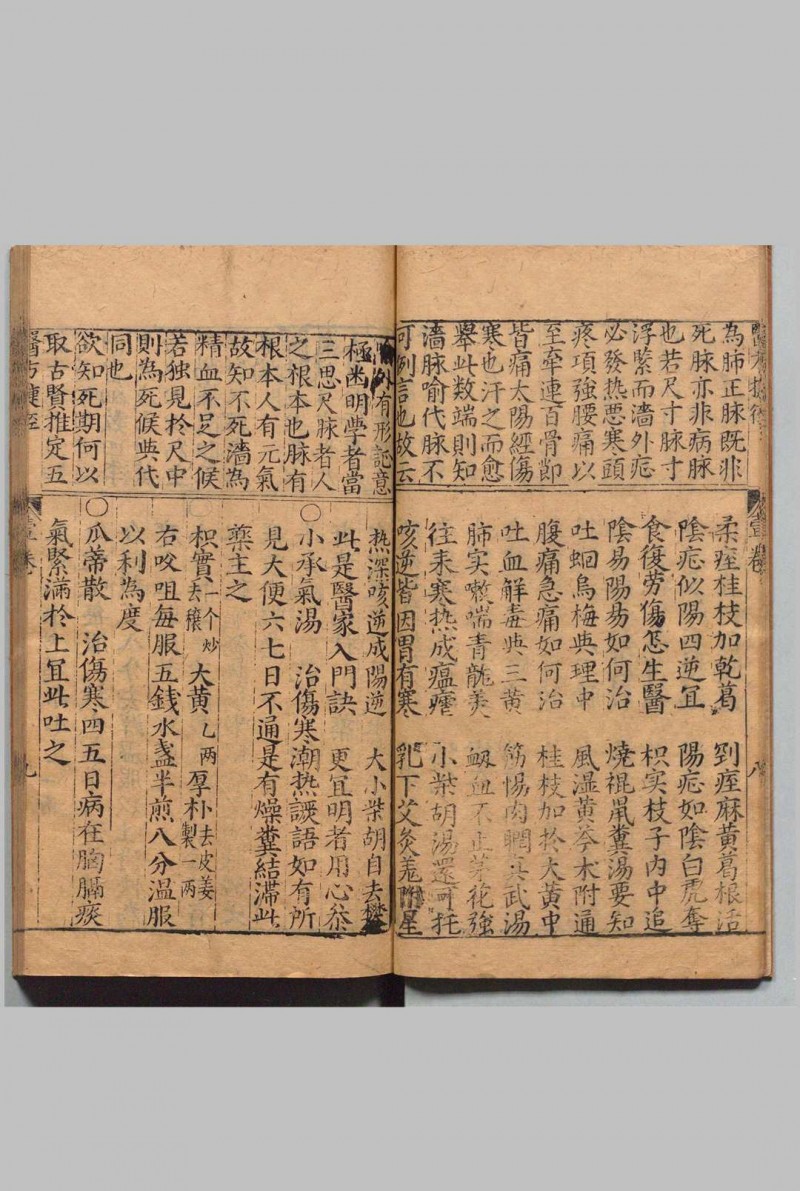 為肺正脉既非
死脉亦非病脉
也若尺寸脉寸
浮緊而濇外症
必發热惡寒頭
疼項強腰痛以
至牽連百骨節
皆痛太陽經傷
寒也汗之而愈
舉此数端則知
濇脉喻代脉不
可例言也故云
柔痓桂枝加乾葛 到痓麻黃葛根活
陰症似陽四逆冝 陽症如陰白虎奪
食復劳傷怎生醫 枳实枝子内中追
陰易陽昜如何治 燒裩鼠糞湯要知
吐蛔烏梅與理中 風湿黃芩术附通
腹痛急痛如何治 桂枝加於大黃中
吐血解毒與三黃 筋惕肉瞤真武湯
肺实嗽喘青龍美 衂血不止茅花強
往来寒热成瘟瘧 小柴胡湯還可托
咳逆皆因胃有寒 乳下艾灸羗附星
外有形説意
極幽明學者當
三思尺脉者人
之根本也脉有
根本人有元氣
故知不死濇為
精血不足之候
若独見於尺中
則為死候與代
同也
欲知死期何以
取古賢推定五
醫方捷徑
热深咳逆成陽逆 大小柴胡自去攀
此是醫家入門訣 更冝明者用心叅
○小承氣湯 治傷寒潮热譩語如有所
見大便六七日不通是有燥糞結滯此
藥主之
枳實一个炒去穰 大黃乙両 厚朴去皮姜製一両
右咬咀每服五錢水盞半煎八分温服
以利為度
○瓜蒂散 治傷寒四五日病在胸膈痰
氣緊滿於上冝此吐之
壹卷
八
九